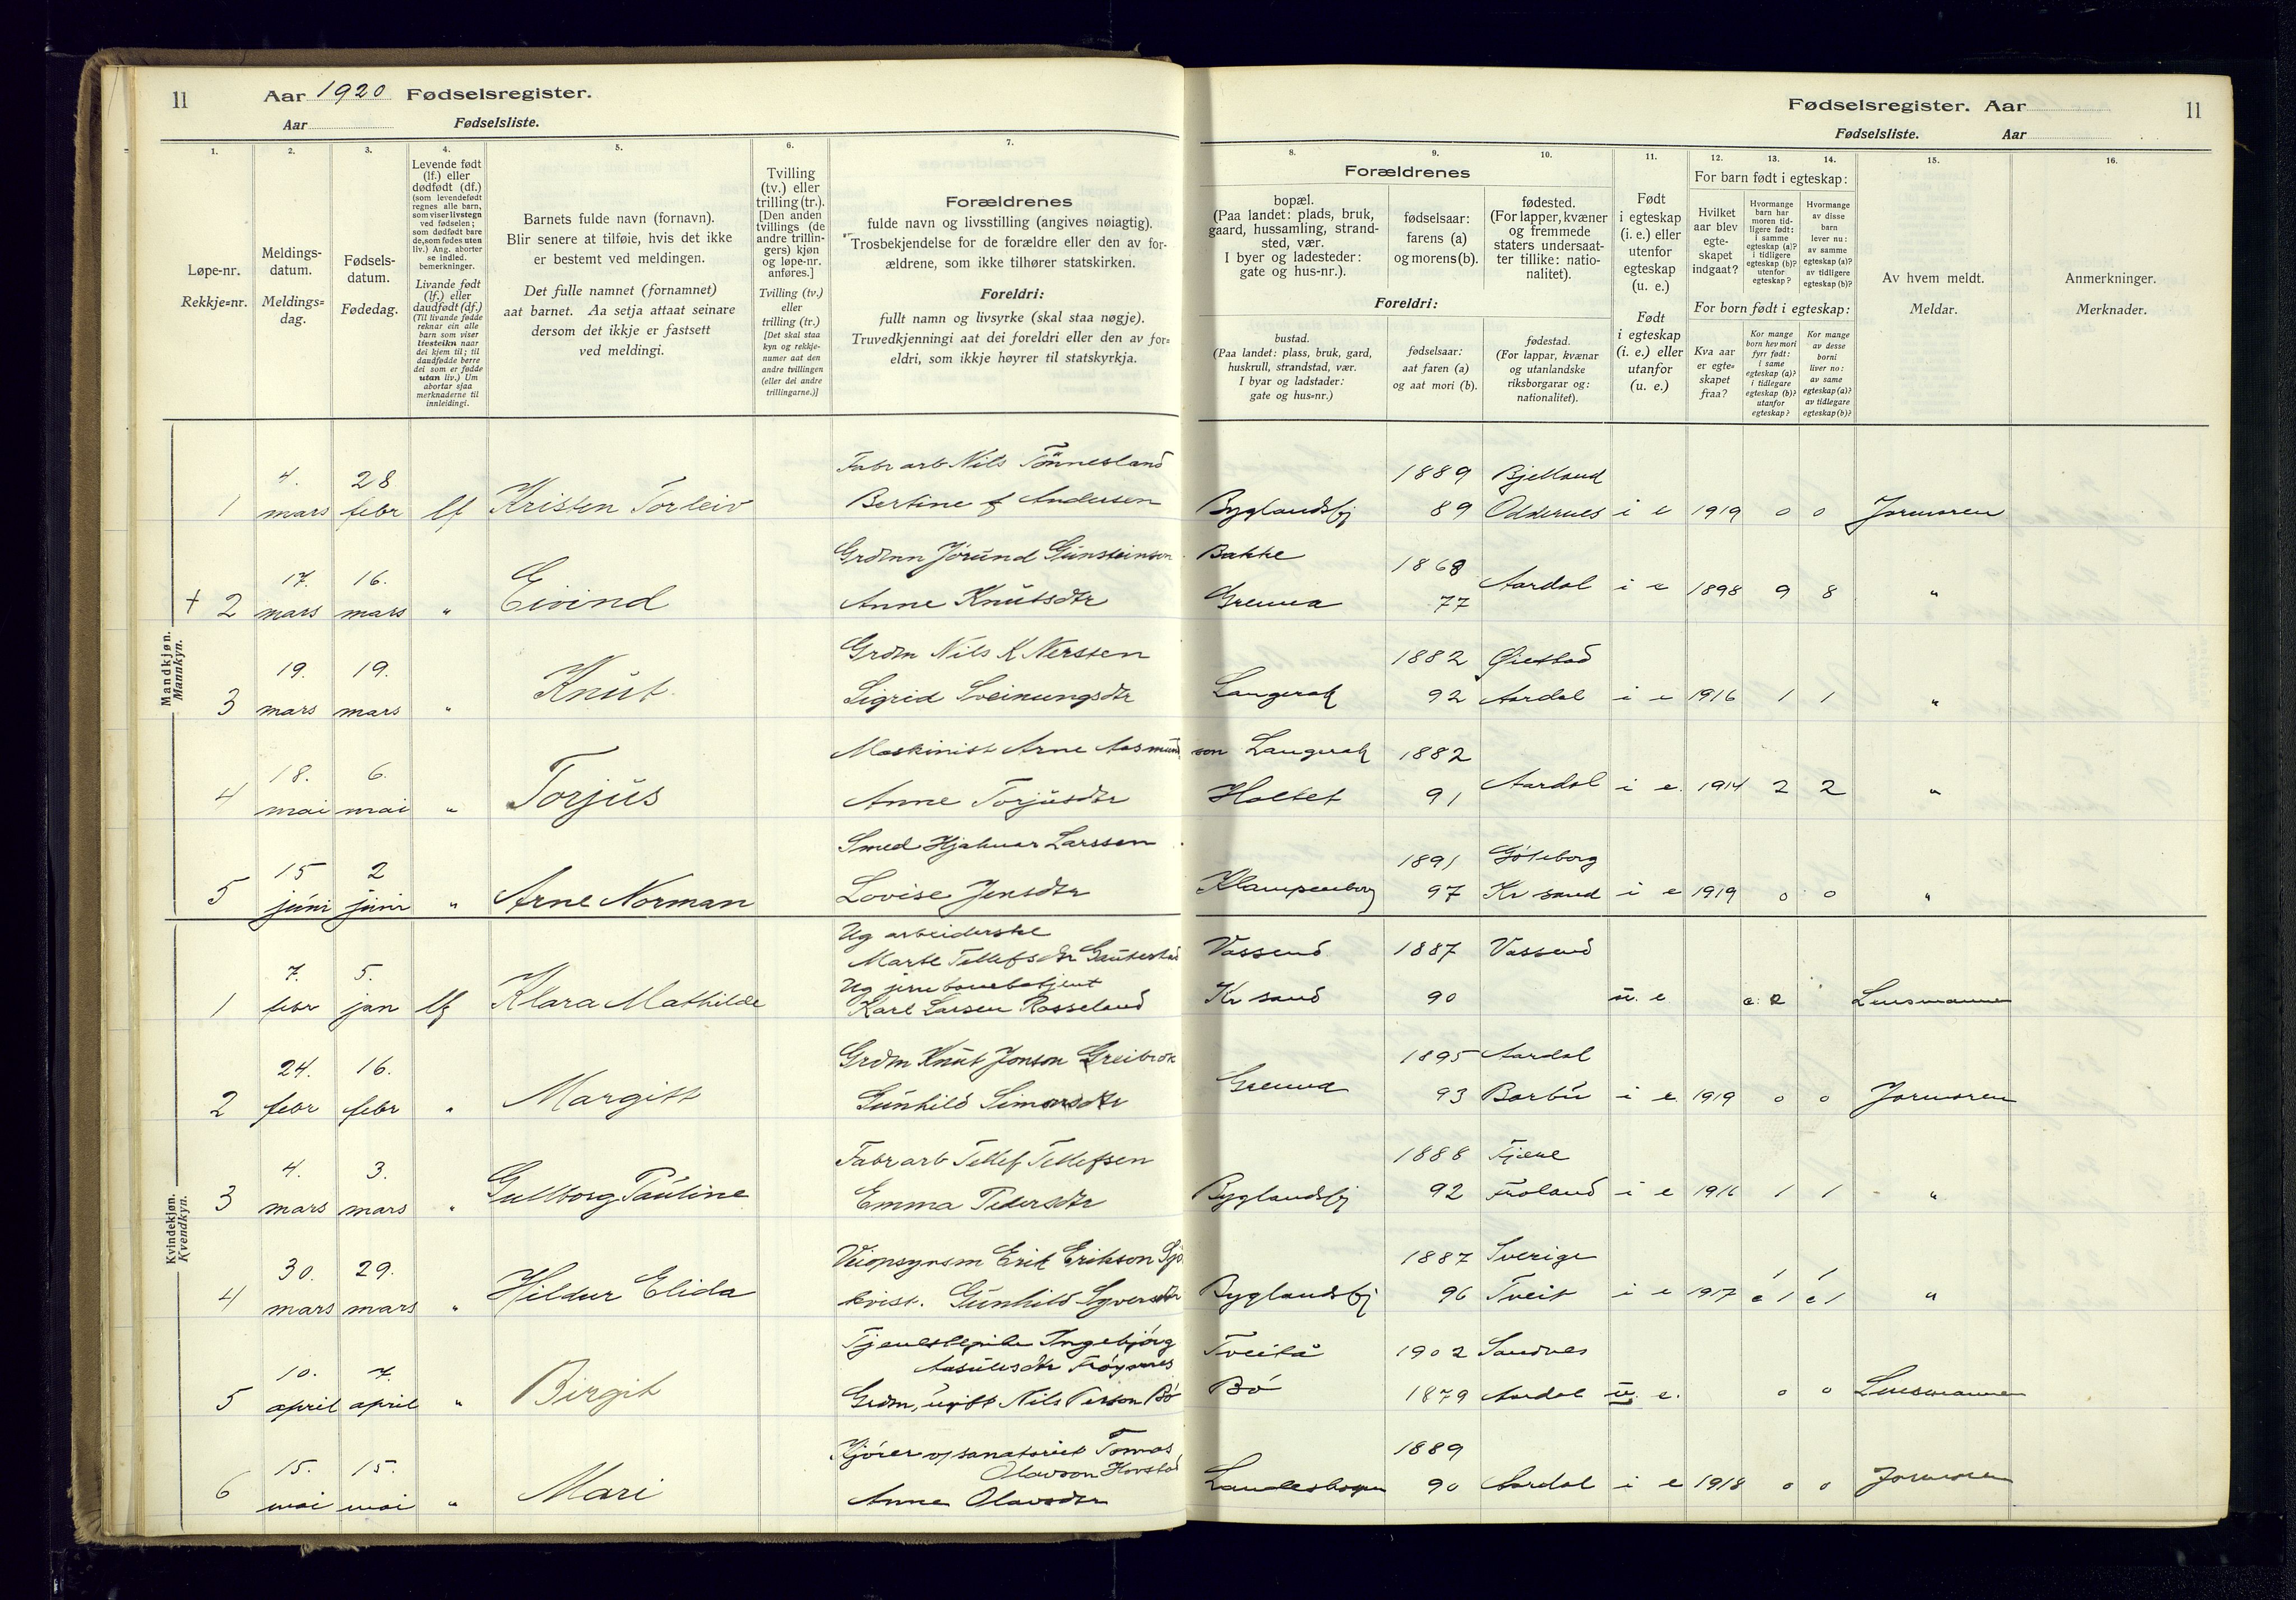 11
Aar 1920 Fødselsregister.
Aar Fødselsliste.
Fødselsregister. Aar
11
Fødselsliste. Aar
1. 2. 3. 4. 5. 6. 7. 8. 9. 10. 11. 12. 13. 14. 15. 16.
Løpe-nr.
Rekkje=nr.
Meldings-
datum.
Meldings=
dag.
Fødsels-
datum.
Fødedag.
Levende født
(lf.) eller
dødfødt (df.)
(som levendefødt
regnes alle barn,
som viser livstegn
ved fødselen;
som dødfødt bare
de, som fødes uten
liv.) Ang. aborter
se indled.
bemerkninger.
Livande født
(lf.) eller
daudfødt (df.)
(Til livande fødde
reknar ein alle
barn som viser
livsteikn naar
dei kjem til; til
daudfødde berre
dei som er fødde
utan liv.) Um
abortar sjaa
merknaderne til
innleidingi.
Barnets fulde navn (fornavn).
Blir senere at tilføie, hvis det ikke
er bestemt ved meldingen.
Det fulle namnet (fornamnet)
aat barnet. Aa setja attaat seinare
dersom det ikkje er fastsett
ved meldingi.
Tvilling
(tv.) eller
trilling (tr.).
[Den anden
tvillings (de
andre trillin-
gers) kjøn
og løpe-nr.
anføres.]
Tvilling (tv.)
eller
trilling (tr.)
[Det skal staa
kyn og rekkje-
numer aat den
andre tvillingen
(eller dei andre
trillingarne.)]
Forældrenes
fulde navn og livsstilling (angives nøiagtig).
Trosbekjendelse for de forældre eller den av for-
ældrene, som ikke tilhører statskirken.
Foreldri:
fullt namn og livsyrke (skal staa nøgje).
Truvedkjenningi aat dei foreldri eller den av for=
eldri, som ikkje høyrer til statskyrkja.
Forældrenes
bopæl.
(Paa landet: plads, bruk,
gaard, hussamling, strand-
sted, vær.
I byer og ladesteder:
gate og hus-nr.).
fødselsaar:
farens (a)
og morens (b).
fødested.
(For lapper, kvæner
og fremmede
staters undersaat-
ter tillike: natio-
nalitet).
Foreldri:
bustad.
(Paa landet: plass, bruk, gard,
huskrull, strandstad, vær.
I byar og ladstader:
gate og hus=nr.)
fødselsaar:
aat faren (a)
og aat mori (b).
fødestad.
(For lappar, kvænar
og utanlandske
riksborgarar og:
nationalitet).
Født
i egteskap
(i. e.) eller
utenfor
egteskap
(u. e.)
Født
i egteskap
(i. e.) eller
utanfor
(u. e.)
For barn født i egteskap:
Hvilket
aar blev
egte-
skapet
indgaat?
Hvormange
barn har
moren tid-
ligere født:
i samme
egteskap (a)?
i tidligere
egteskap (b)?
utenfor
egteskap?
Hvormange
av disse
barn
lever nu:
av samme
egteskap (a)?
av tidligere
egteskap (b)?
For barn født i egteskap:
Kva aar
er egte=
skapet
fraa?
Kor mange
born hev mori
fyrr født:
i same
egteskap (a)?
i tidlegare
egteskap (b)?
utanfor
egteskap?
Kor mange
av desse
borni
liver no:
av same
egteskap (a)?
av tidlegare
egteskap (b)?
Av hvem meldt.
Meldar.
Anmerkninger.
Merknader.
Mandkjøn.
Mannkyn.
4. 28 Fabrarb Nils Tönnesland 1889 Bjelland
1 mars febr lf Kristen Torleiv Bertine f Andersen Byglandsfj 89 Oddernes i e 1919 0 0 Jormoren
17. 16. Grdmn Jörund Gunsteinson Bakke 1868
+ 2 mars mars " Eivind Anne Knutsdtr Grenna 77 Aardal i e 1898 9 8 "
19. 19. Grdm Nils K Nersten 1882 Øiestad
3 mars mars " Knut Sigrid Sveinungsdtr Langerak 92 Aardal i e 1916 1 1 "
18. 6. Maskinist Arne Aasmundson Langerak 1882
4 mai mai " Torjus Anne Torjusdtr Holtet 91 Aardal i e. 1914 2 2 "
15 2 Smed Hjalmar Larssen 1891 Göteborg
5 juni juni " Arne Norman Lovise Jensdtr Klampenborg 97 Kr sand i e 1919 0 0 "
Kvindekjøn.
Kvendkyn.
Ug arbeiderske
7. 5. Marte Tellefsdtr Gautestad Vassend 1887 Vassend
Ug jernbanebetjent
1 febr jan lf Klara Mathilde Karl Larsen Rosseland Kr sand 90 u. e c: 2 Lensmannen
24. 16. Grdm Knut Jonson Greibrok 1895 Aardal
2 febr febr " Margitt Gunhild Simonsdtr Grenna 93 Barbu i e 1919 0 0 Jormoren
4. 3. Fabrarb Tellef Tellefsen 1888
3 mars mars " Gullborg Pauline Emma Pedersdtr Byglandsfj 92 Froland i e 1916 1 1 "
30. 29. Veiopsynsm Erik Erikson Sjö 1887 Sverige
4 mars mars " Hildur Elida kvist. Gunhild Syversdtr Byglandsfj 96 Tveit i e 1917 1 c 1 1 c 1 "
Tjenestepike Ingebjörg Tveitå 1902 Sandnes
10. 7. Aasulvsdtr Fröysnes
5 april april " Birgit Grdm, ugift Nils Person Bö Bö 1879 Aardal u. e. 0 0 Lensmannen
Kjörer v sanatoriet Tomas 1889
15. 15. Olavson Hovstad
6 mai mai " Mari Anne Olavsdtr Landeskogen 90 Aardal i e 1918 0 0 Jormoren